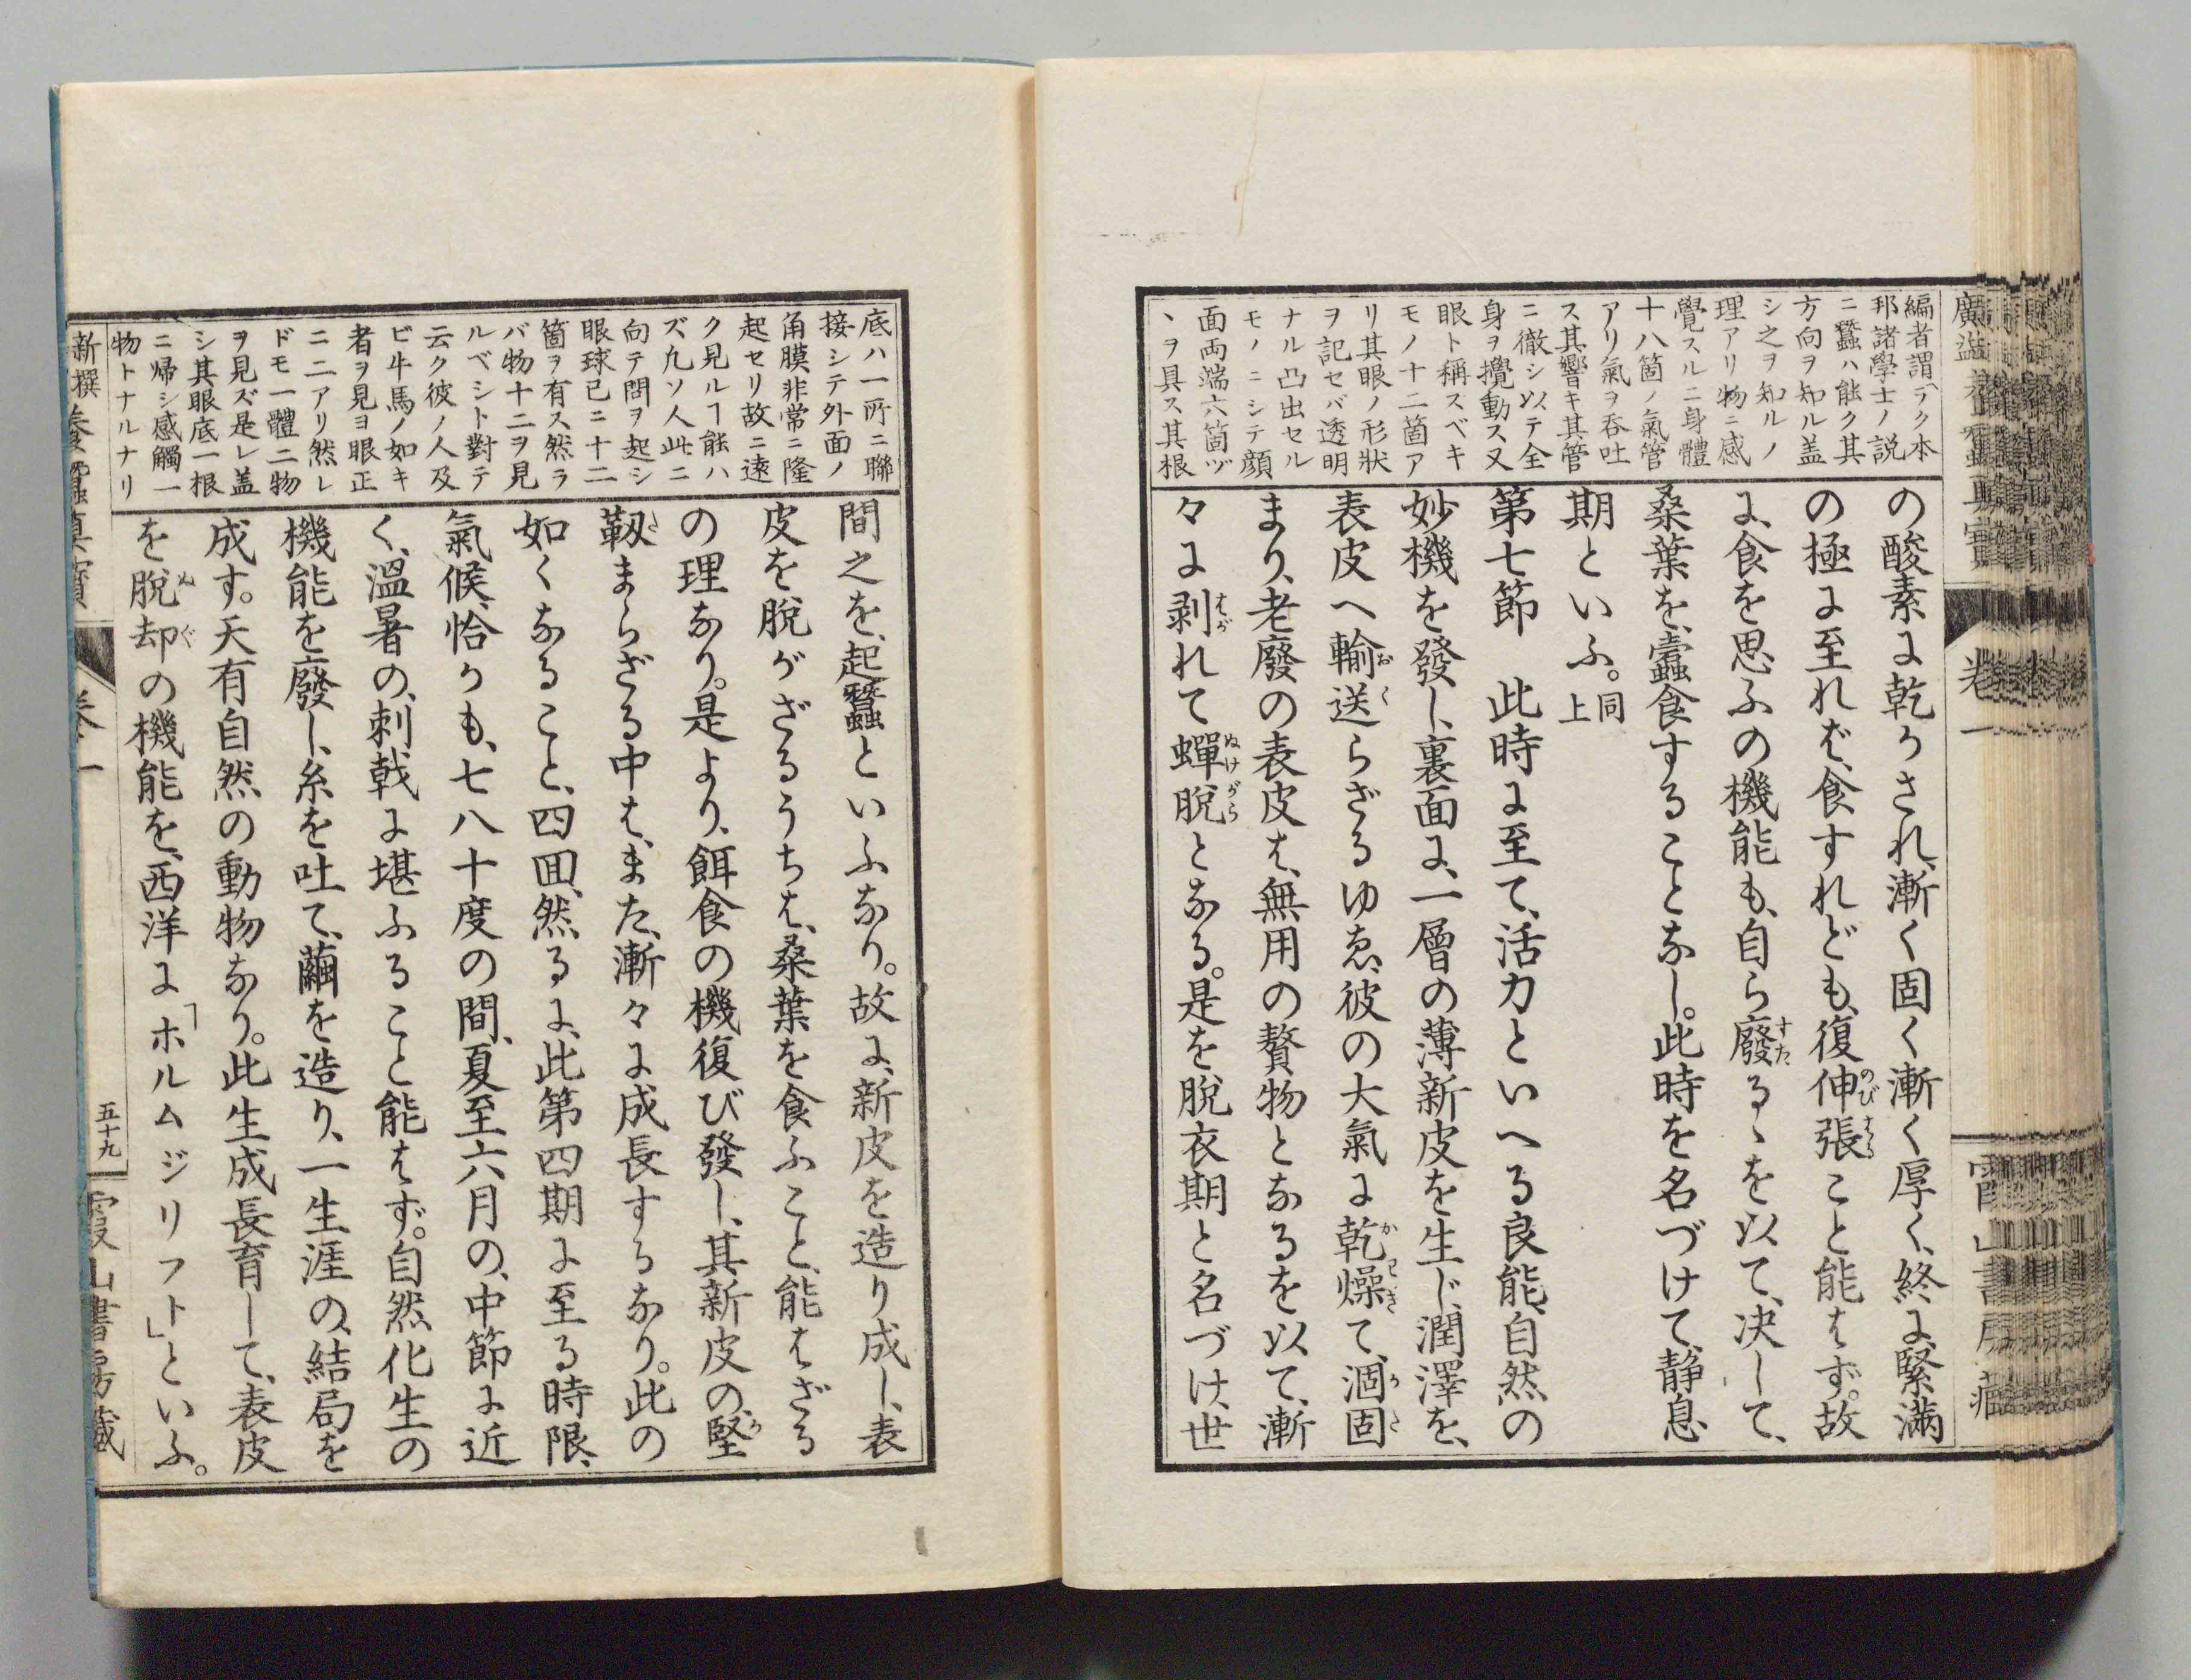 編者謂ラク本
邦諸學士ノ説
ニ蠶ハ能ク其
方向ヲ知ル盖
シ之ヲ知ルノ
理アリ物ニ感
覺スルニ身體
十八箇ノ氣管
アリ氣ヲ呑吐
ス其響キ其管
ニ徹シ以テ全
身ヲ攪動ス又
眼ト稱スベキ
モノ十二箇ア
リ其眼ノ形狀
ヲ記セバ透明
ナル凸出セル
モノニシテ顔
面両端六箇ヅ
ヽヲ具ス其根
の酸素に乾かされ、漸く固く漸く厚く、終に、緊滿
の極に至れば、食すれども、復伸張こと能はず。故
に、食を思ふの機能も、自ら廢るゝを以て、决して、
桑葉を、蠹食することなし。此時を名づけて、静息
期といふ。同上
第七節　此時に至て、活力といへる良能、自然の
妙機を發し、裏面に、一層の薄新皮を生じ、潤澤を、
表皮へ輸送らざるゆゑ、彼の大氣に乾燥て、涸固
まり、老廢の表皮は、無用の贅物となるを以て、漸
々に剥れて蟬脫となる。是を脫衣期と名づけ、世
卷一
底ハ一所ニ聯
接シテ外面ノ
角膜非常ニ隆
起セリ故ニ遠
ク見ルヿ能ハ
ズ凡ソ人此ニ
向テ問ヲ起シ
眼球已ニ十二
箇ヲ有ス然ラ
バ物十二ヲ見
ルベシト對テ
云ク彼ノ人及
ビ牛馬ノ如キ
者ヲ見ヨ眼正
ニ二アリ然レ
ドモ一體二物
ヲ見ズ是レ盖
シ其眼底一根
ニ帰シ感觸一
物トナルナリ
間之を、起蠶といふなり。故に、新皮を造り成し、表
皮を脫がざるうちは、桑葉を食ふこと、能はざる
の理なり。是より、餌食の機復び發し、其新皮の、堅
靱まらざる中は、また、漸々に成長するなり。此の
如くなること、四囬、然るに、此第四期に至る時限、
氣候、恰かも、七八十度の間、夏至六月の、中節に近
く、溫暑の、刺戟に堪ふること能はず。自然化生の
機能を廢し、糸を吐て、繭を造り、一生涯の、結局を
成す。天有自然の動物なり。此生成長育して、表皮
を脫却の機能を、西洋に「ホルムジリフト」といふ。
新撰養蠶真寶
卷一
五十九
霞山書房藏